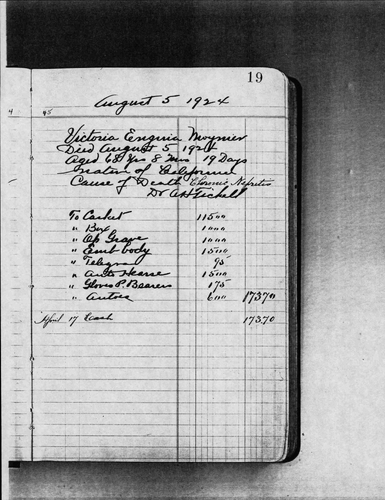 19
4 45
August 5 1924
Victoria Enguia Moynier
Died August 5 1924
Aged 68 Yrs 8 Mos 19 Days
Native of California
Cause of Death Chronic Nefritis
Dr A H Tickell
To Casket 115 00
" Box 10 00
" Op Grave 10 00
" Emb body 15 00
" Telegram 75
" Auto Hearse 15 00
" Gloves P. Bearers 1 75
" Autos 6 00 173 70
April 17 Cash 173 70